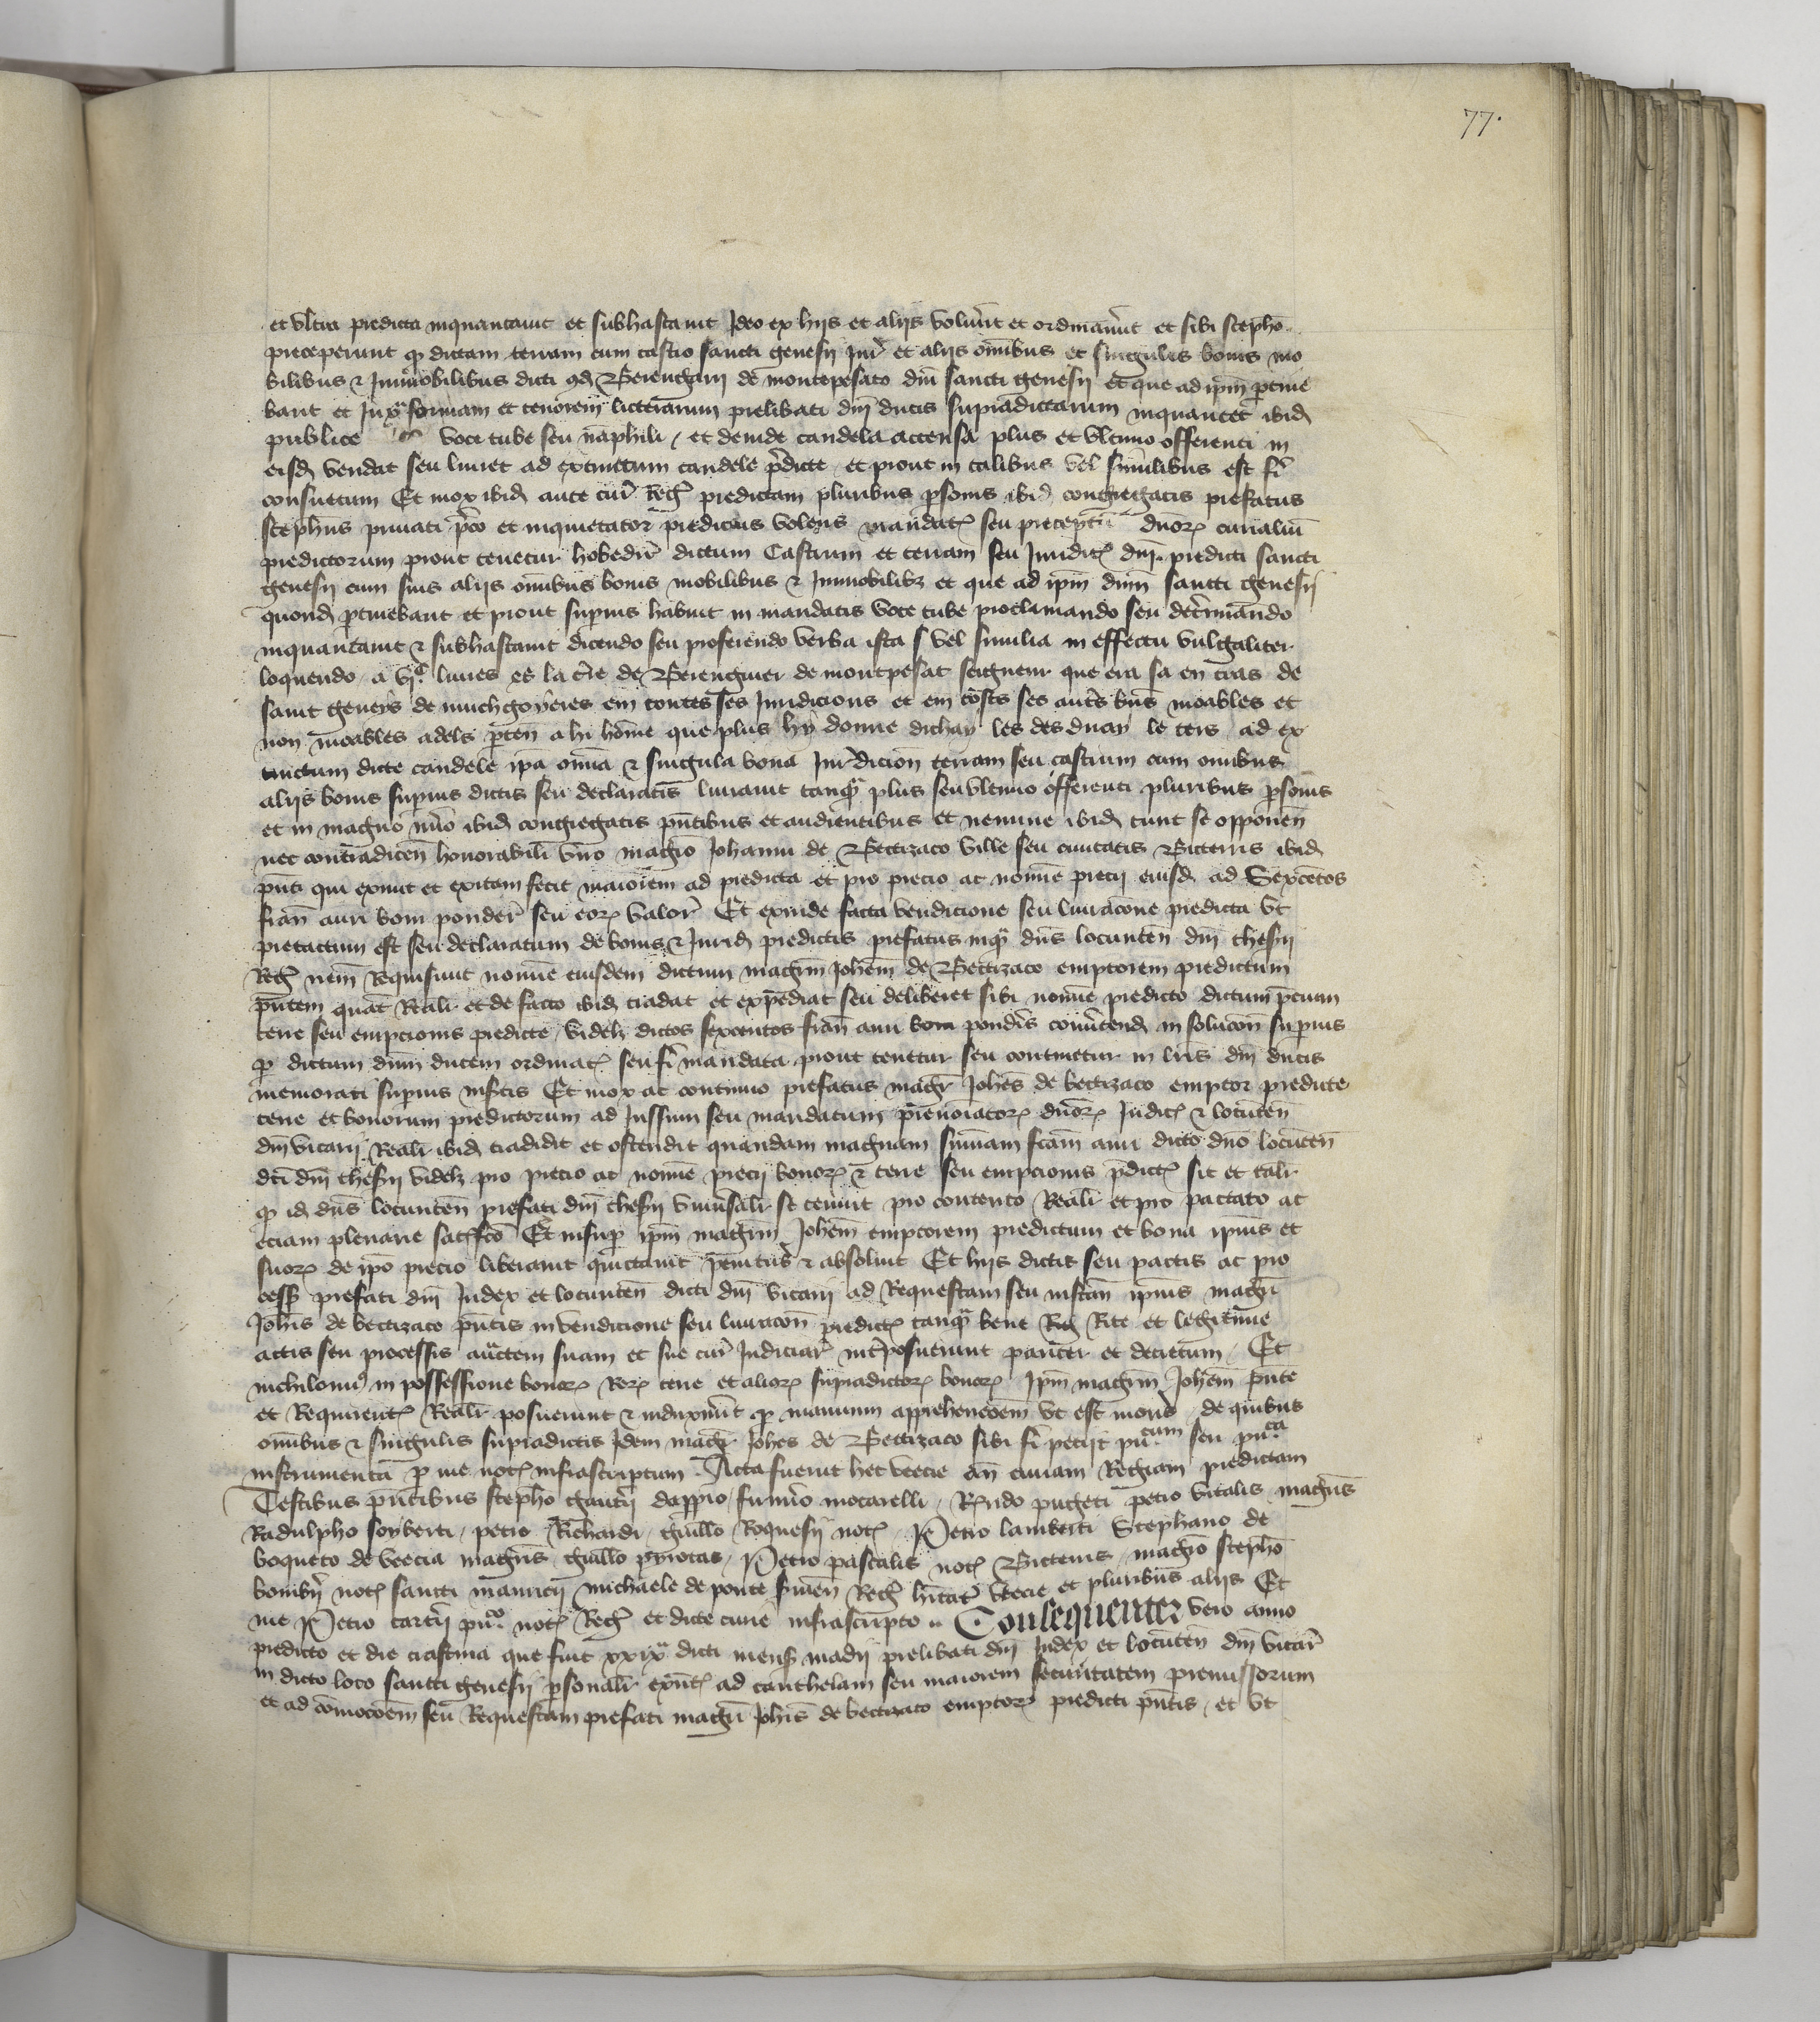 77.
et vltra predicta inquantauit et subhastauit Ideo ex hijs et alijs volũnt et ordinãnt et sibi stepho
preceperunt q dictam terram cum castro sancti genesij Iur et alijs omibus et singulis bonis mo
bilibus & Inmobilibus dicti qd Berengarij de montepesato dni sancti genesij et que ad ipm ptine
bant et Iuxᵃ formam et tenorem litterarum prelibati dni ducis supradictarum inquantet ibid
publice voce tube seu naphili / et deinde candela accensa plus et vltimo offerenti in
eisd vendat seu liuret ad extinctum candele pdicte et prout in talibus vel similibus est fi
consuetum Et mox ibid ante cur Reg predictam pluribus psonis ibi congregatis prefatus
stephus priuati pco et inquietator predictus volens mandat seu preceptu dnor curialiu
predictorum prout tenetur hobedir dictum Castrum et terram seu Iuridic dni predicti sancti
genesij cum suis alijs omibus bonis mobilibus & Inmobilibz et que ad ipm dnm sancti genesij
quond ptinebant et prout supius habuit in mandatis voce tube proclamando seu determinando
inquantauit & subhastauit dicendo seu proferendo verba ista s vel similia in effectu vulgaliter
loquendo a vjᶜ liures es la tre de Berenguier de montpesat seigneur que era sa en tras de
saint genieys de muchgoyeres em toutes ses Iuridicions et em tosts ses autrs bns moables et
non moables adels pten a hi home que plus hy donne dichay les des duay le ters ad ex
tinctum dicte candele ipa omia & singula bona Iuridicion terram seu castrum cum omibus
alijs bonis supius dictis seu declaratis liurauit tanqᵃ plus seu vltimo offerenti pluribus psonis
et in magno nuo ibid congregatis pntibus et audientibus et nemine ibid tunc se opponen
nec contradicen honorabili viro magro Johanni de Bettizaco ville seu ciuitatis Bitterris ibid
pnti qui exiuit et exitam fecit maiorem ad predicta et pro precio ac nomine precij eiusd ad Sexcetos
fran auri boni ponder seu eor valor Et exinde facta vendicione seu liuracone predicta vt
pretactum est seu declaratum de bonis & Iurid predictis prefatus inqᵃ dns locunten dni thesrij
Reg nem Requisiuit nomine eiusdem dictum magrm Johem de Bettizaco emptorem predictum
pntem quat Reali et de facto ibid tradat et expediat seu deliberet sibi nomine predicto dictum ptium
terre seu empcionis predicte / videlz dictos sexcentos fran auri boni pondis couertend in solucon supius
p dictum dnm ducem ordinat seu fi mandata prout tenetur seu continetur in lris dni ducis
memorati supius insctis Et mox ac continuo prefatus magr Johes de bettizaco emptor predicte
terre et bonorum predictorum ad Iussum seu mandatum prenoiator dnor Iudic & locunten
dni vicarij Reali ibid tradidit et ostendit quandam magnam sumam fram auri dicto dno locunten
dci dni thesrij videlz pro precio ac nomine precij bonor & terre seu empcionis pdict sic et tali
q id dns locunten prefati dni thesrij vniusali se tenuit pro contento Reali et pro pactato ac
eciam plenarie satsfco Et insup ipm magrm Johem emptorem predictum et bona ipius et
suor de ipo precio liberauit quictauit penitus & absoluit Et hijs dictis seu pactis ac pro
cess prefati dni Iudex et locunten dicti dni vicarij ad Requestam seu instan ipius magri
Johis de bettizaco pntis in vendicione seu liuracon predict tanqᵃ bene Reg Rite et legitime
actis seu processis auctem suam et sue cur Iudiciar interposuerunt pariter et decretum / Et
nichilomis in possessione bonor Rer terre et alior supradictor bonor Ipm magrm Johem pnte
et Requirent Reali posuerunt & induxerut p manuum apprehencoem vt est moris de quibus
omibus & singulis supradictis Idem magr Johes de Bettizaco sibi fi petijt puᶜᵘᵐ seu puᶜᵃ
instrumenta p me not infrascriptum Acta fuerut hec veecie an curiam Regiam predictam
Testibus pntibus stepho gantrij dappio / firmio mocarelli / Rndo pugeti petro vitalis magris
Radulpho soyberti / petro Richardi / guillo Roquesij not / Petro lamberti Stephano de
boqueto de veecia magris / guillo pyrotas / Petro pascalis not Bitteris / magro stepho
bonibri not sancti mauricij michaele de ponte siruen Reg hitat veecie et pluribus alijs Et
me Petro tartrij puᶜᵒ not Reg et dicte curie infrascripto .. Consequenter vero anno
predicto et die crastina que fuit xxixᵃ dicti mens madij prelibati dni Iudex et locunten dni vicar
in dicto loco sancti genesij psonali exnt ad cauthelam seu maiorem securitatem premissorum
et ad comocoem seu Requestam prefati magri Johis de bettizaco emptor predicti pntis / et vt